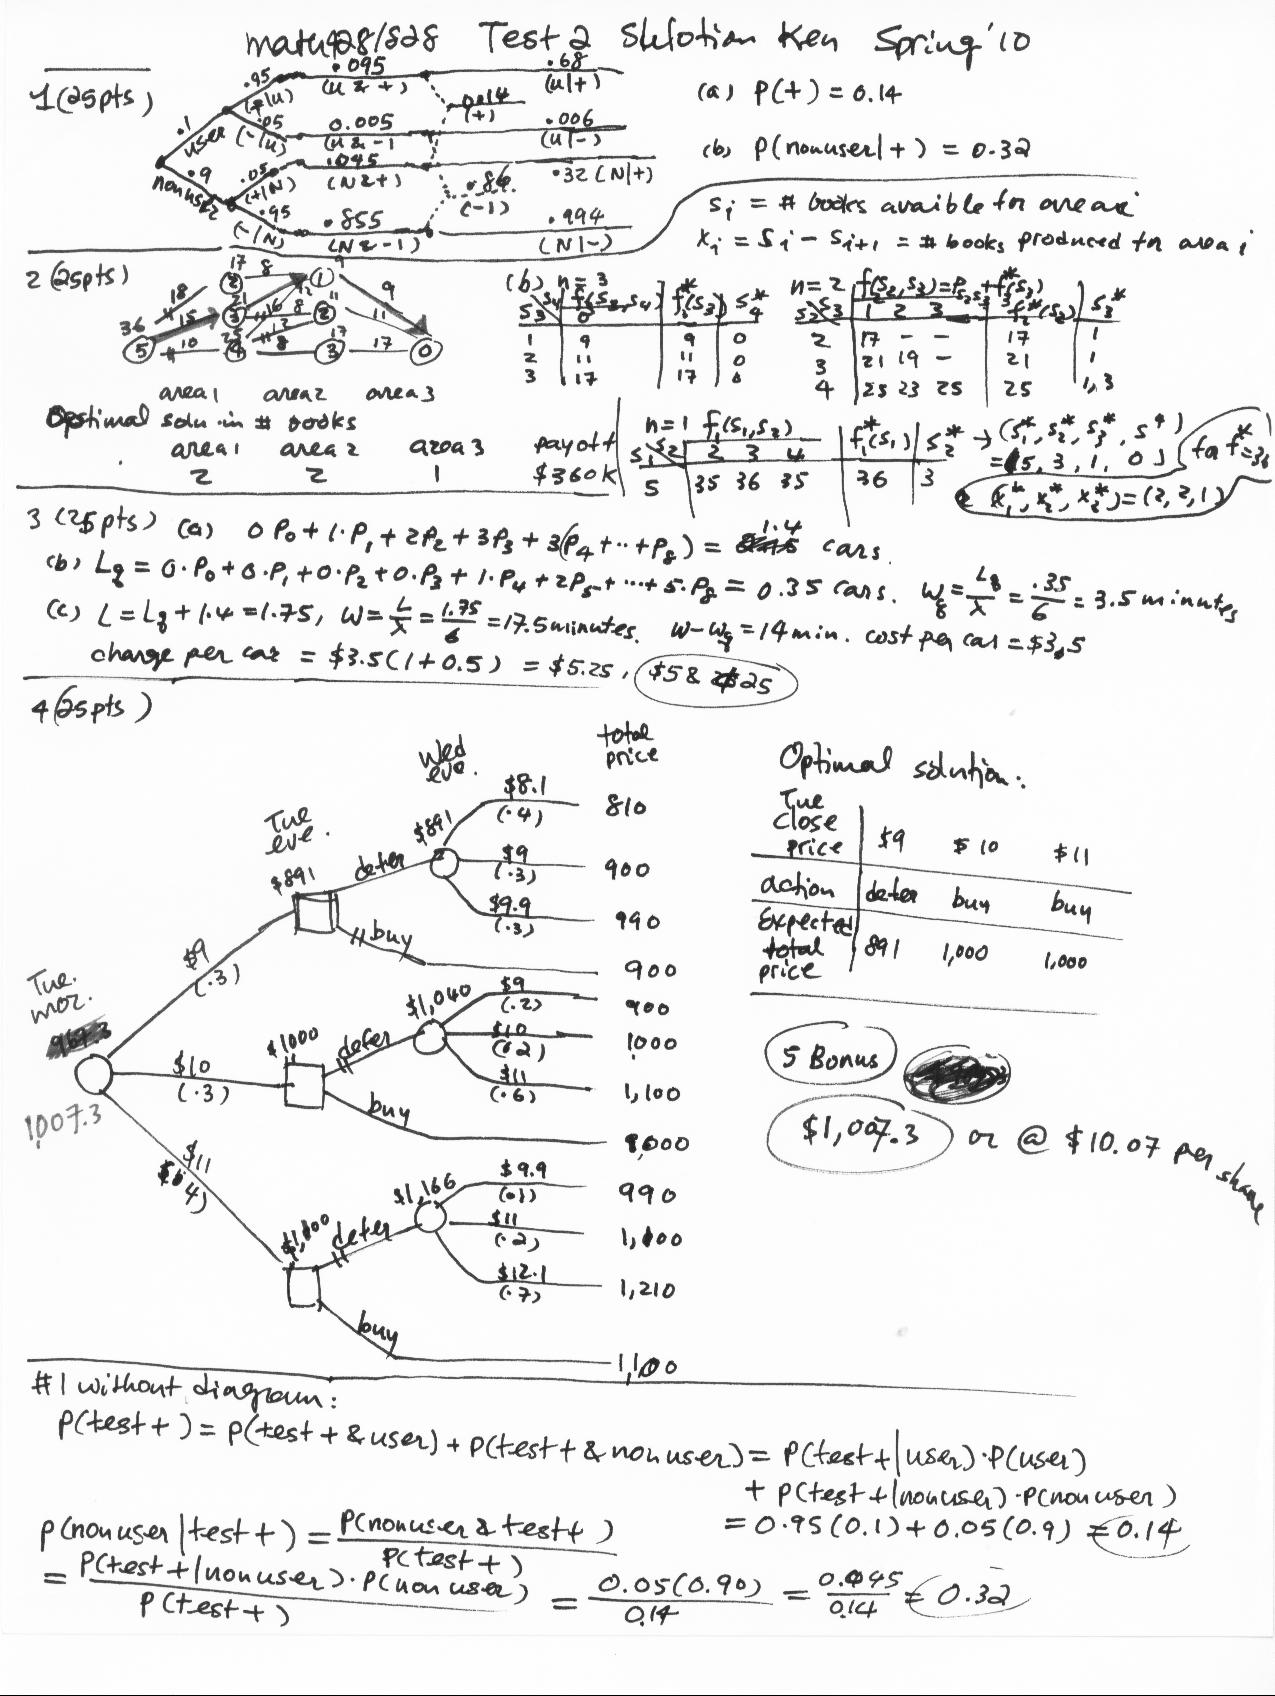 math428/528 Test 2 Solution Key Spring '10
1 (25pts)
.1 user
.9 nonuser
.95 (+|U)
.05 (-|U)
.05 (+|N)
.95 (-|N)
.095 (U & +)
0.005 (U & -)
.045 (N & +)
.855 (N & -)
0.14 (+)
.86 (-)
.68 (U|+)
.006 (U|-)
.32 (N|+)
.994 (N|-)
(a) P(+) = 0.14
(b) P(nonuser|+) = 0.32
2 (25pts)
Si = # books avaible for area i
Xi = Si - Si+1 = # books produced for area i
36 18 15 10
17 8 9 9
21 16 8 11 11
25 13 8 17 17
5 2 3 4 1 2 3 0
area 1 area 2 area 3
Optimal solu. in # books
area 1 area 2 area 3 payoff
2 2 1 $360K
(b) n = 3
S3 S4 f3(S3, S4) f3*(S3) S4*
0
1 9 9 0
2 11 11 0
3 17 17 0
n = 2 f2(S2, S3) = PS2S3 + f3*(S3)
S2 S3 1 2 3 f2*(S2) S3*
2 17 - - 17 1
3 21 19 - 21 1
4 25 23 25 25 1,3
n = 1 f1(S1, S2)
S1 S2 2 3 4 f1*(S1) S2*
5 35 36 35 36 3
→ (S1*, S2*, S3*, S4)
= (5, 3, 1, 0) for f* = 36
(X1*, X2*, X2*) = (2, 2, 1)
3 (25pts) (a) 0 P0 + 1·P1 + 2P2 + 3P3 + 3(P4 + ·· + P8) = 1.4 cars.
(b) Lq = 0·P0 + 0·P1 + 0·P2 + 0·P3 + 1·P4 + 2P5 + ··· + 5·P8 = 0.35 cars. Wq = Lq/λ = .35/6 = 3.5 minutes
(c) L = Lq + 1.4 = 1.75, W = L/λ = 1.75/6 = 17.5 minutes. W - Wq = 14 min. cost per car = $3.5
change per car = $3.5(1 + 0.5) = $5.25, $5 & 25
4 (25pts)
Tue. mor.
Tue eve.
Wed eve.
total price
1,007.3
$9 (.3)
$10 (.3)
$11 (.4)
$891 defer $891
buy
$8.1 (.4) 810
$9 (.3) 900
$9.9 (.3) 990
900
$1000 defer $1,040
buy
$9 (.2) 900
$10 (.2) 1000
$11 (.6) 1,100
1,000
$1,100 defer $1,166
buy
$9.9 (.1) 990
$11 (.2) 1,100
$12.1 (.7) 1,210
1,100
Optimal solution:
Tue close price $9 $10 $11
action defer buy buy
Expected total price 891 1,000 1,000
5 Bonus
$1,007.3 or @ $10.07 per share
#1 without diagram:
P(test +) = P(test + & user) + P(test + & nonuser) = P(test + | user)·P(user)
+ P(test + | nonuser)·P(nonuser)
= 0.95(0.1) + 0.05(0.9) = 0.14
P(nonuser | test +) = P(nonuser & test +) / P(test +)
= P(test + | nonuser)·P(nonuser) / P(test +) = 0.05(0.90) / 0.14 = 0.045 / 0.14 = 0.32